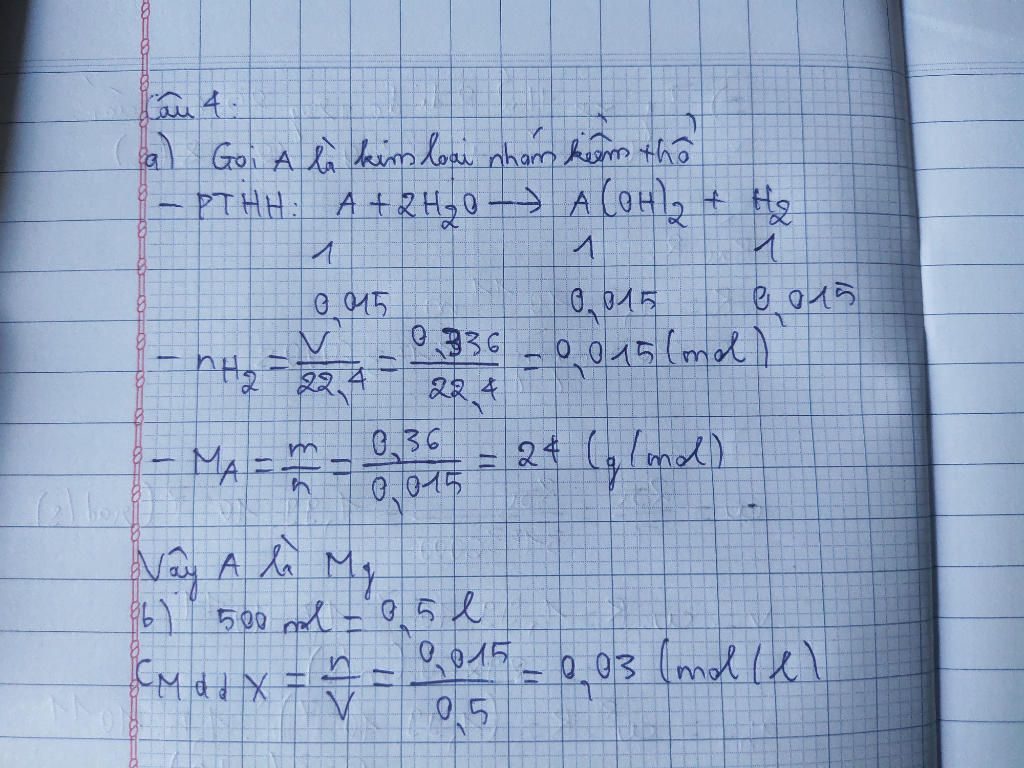 Câu 4:
a) Gọi A là kim loại nhóm kiềm thổ
- PTHH: A + 2H₂O → A(OH)₂ + H₂
1 1 1
0,015 0,015 0,015
- nH₂ = V/22,4 = 0,336/22,4 = 0,015 (mol)
- MA = m/n = 0,36/0,015 = 24 (g/mol)
Vậy A là Mg
b) 500 ml = 0,5 l
CM dd X = n/V = 0,015/0,5 = 0,03 (mol/l)